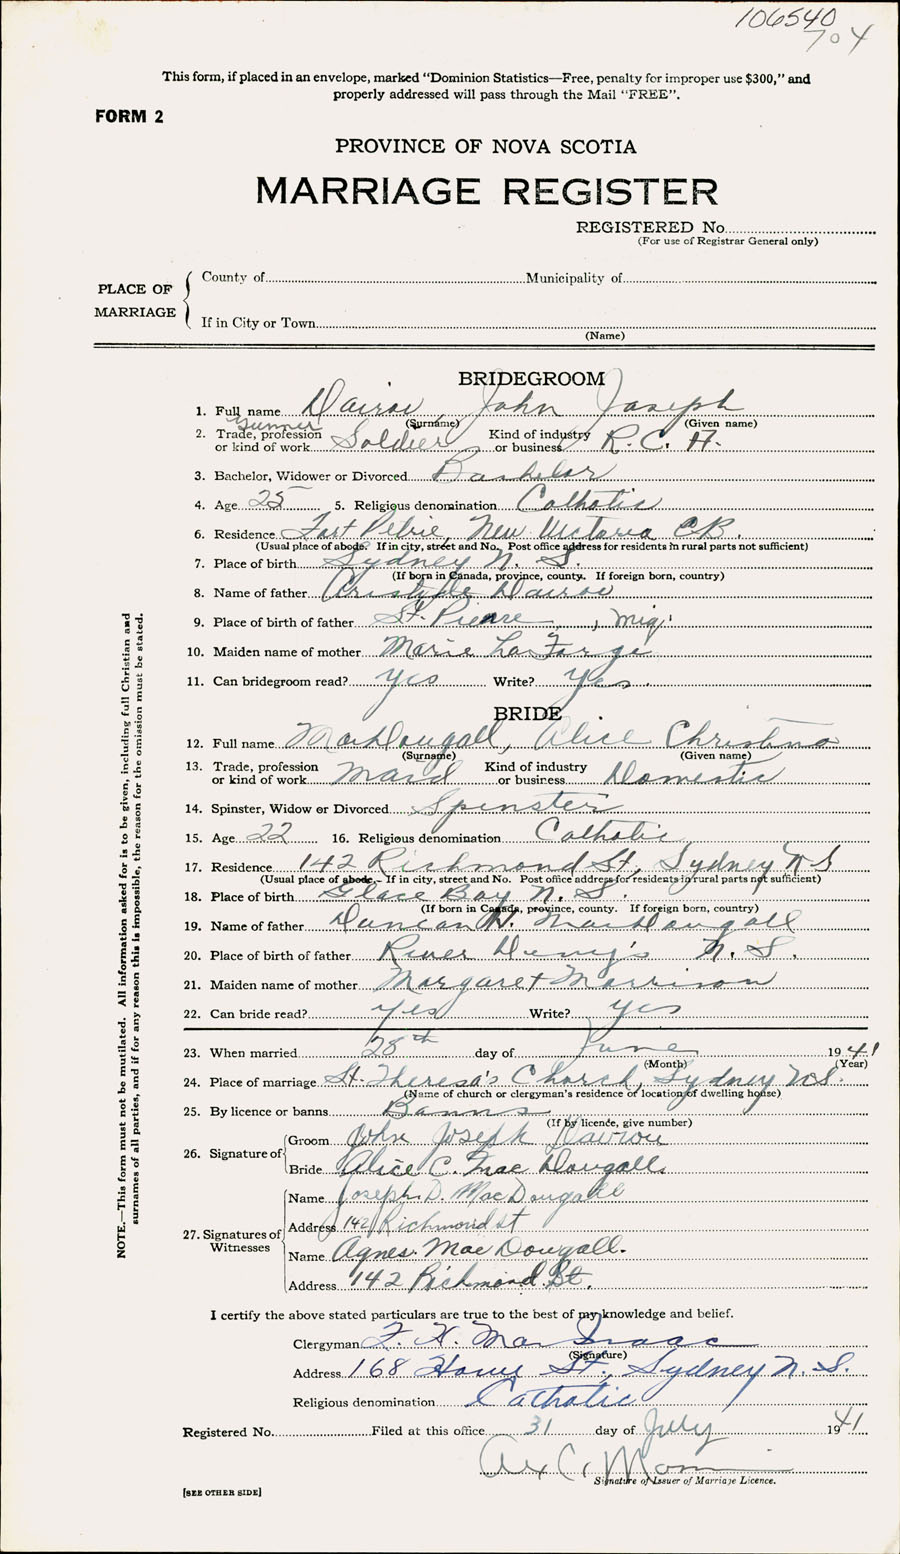 106540
704
This form, if placed in an envelope, marked "Dominion Statistics—Free, penalty for improper use $300," and
properly addressed will pass through the Mail "FREE".
FORM 2
PROVINCE OF NOVA SCOTIA
MARRIAGE REGISTER
REGISTERED No.
(For use of Registrar General only)
PLACE OF MARRIAGE
County of Municipality of
If in City or Town
(Name)
NOTE.—This form must not be mutilated. All information asked for is to be given, including full Christian and
surnames of all parties, and if for any reason this is impossible, the reason for the omission must be stated.
BRIDEGROOM
1. Full name Dairou, John Joseph
(Surname) (Given name)
Gunner
2. Trade, profession or kind of work Soldier Kind of industry or business R. C. A.
3. Bachelor, Widower or Divorced Bachelor
4. Age 25 5. Religious denomination Catholic
6. Residence Fort Petrie, New Victoria C.B.
(Usual place of abode. If in city, street and No. Post office address for residents in rural parts not sufficient)
7. Place of birth Sydney N. S.
(If born in Canada, province, county. If foreign born, country)
8. Name of father Aristide Dairou
9. Place of birth of father St. Pierre, Miq.
10. Maiden name of mother Marie LaFarge
11. Can bridegroom read? yes Write? Yes.
BRIDE
12. Full name MacDougall, Alice Christina
(Surname) (Given name)
13. Trade, profession or kind of work Maid Kind of industry or business Domestic
14. Spinster, Widow or Divorced Spinster
15. Age 22 16. Religious denomination Catholic
17. Residence 142 Richmond St., Sydney N S
(Usual place of abode. If in city, street and No. Post office address for residents in rural parts not sufficient)
18. Place of birth Glace Bay N. S.
(If born in Canada, province, county. If foreign born, country)
19. Name of father Duncan MacDougall
20. Place of birth of father River Deny's N. S.
21. Maiden name of mother Margaret Morrison
22. Can bride read? yes Write? yes
23. When married 28th day of June 1941
(Month) (Year)
24. Place of marriage St. Theresa's Church, Sydney N.S.
(Name of church or clergyman's residence or location of dwelling house)
25. By licence or banns Banns
(If by licence, give number)
26. Signature of
Groom John Joseph Dairou
Bride Alice C. Mac Dougall.
27. Signatures of Witnesses
Name Joseph D. MacDougall
Address 142 Richmond st
Name Agnes Mac Dougall.
Address 142 Richmond St.
I certify the above stated particulars are true to the best of my knowledge and belief.
Clergyman MacIsaac
(Signature)
Address 168 Howe St., Sydney N. S.
Religious denomination Catholic
Registered No. Filed at this office 31 day of July 1941
Signature of Issuer of Marriage Licence.
[SEE OTHER SIDE]